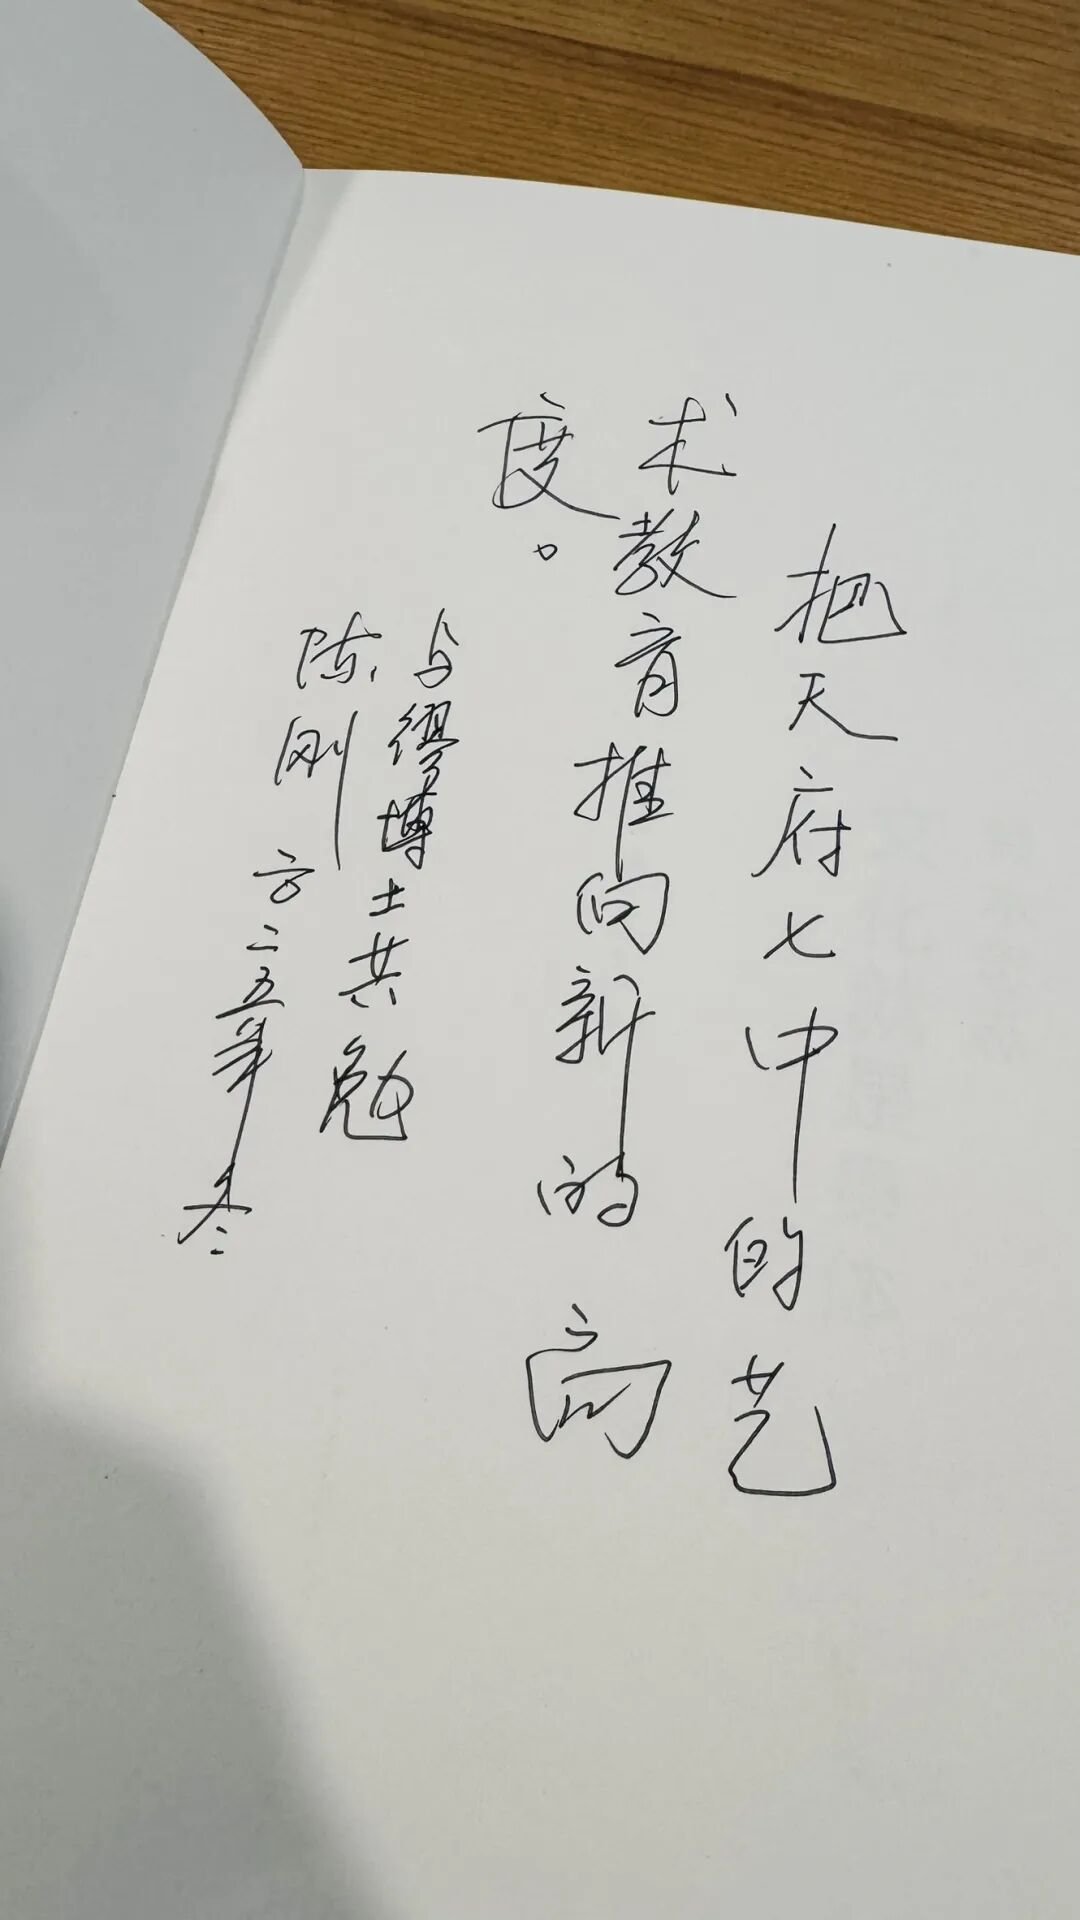 把天府七中的艺
术教育推向新的高
度。
与缪博士共勉
陈刚 二〇二五年冬